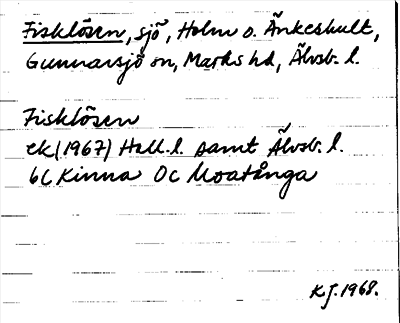 Fisklösen, sjö, Holm o. Änkeshult,
Gunnarsjö sn, Marks hd, Älvsb. l.
Fisklösen
ek (1967) Hall. l. samt Älvsb. l.
6C Kinna 0c Moatånga
KJ. 1968.